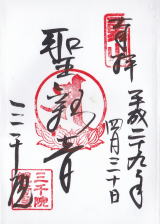 奉拝
平成二十九年
四月三十日
聖観音
三千院
三千院